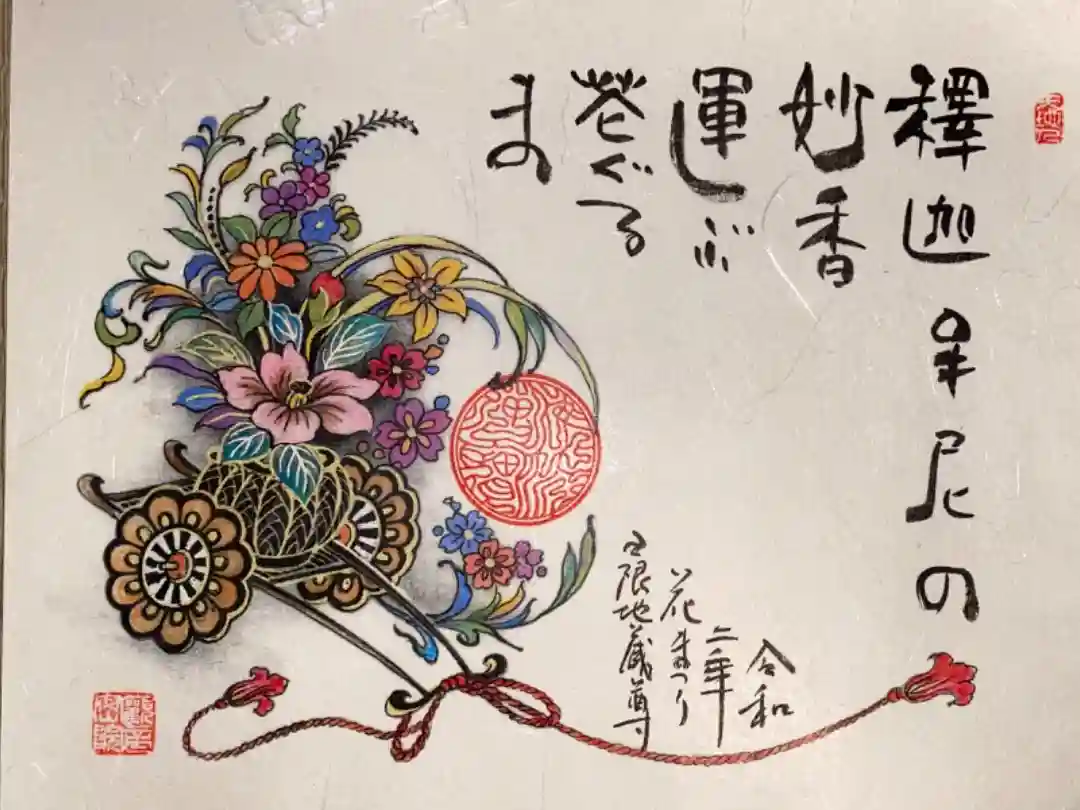 釋迦牟尼の
妙香
運ぶ
花ぐる
ま
令和
二年
花まつり
日限地蔵尊